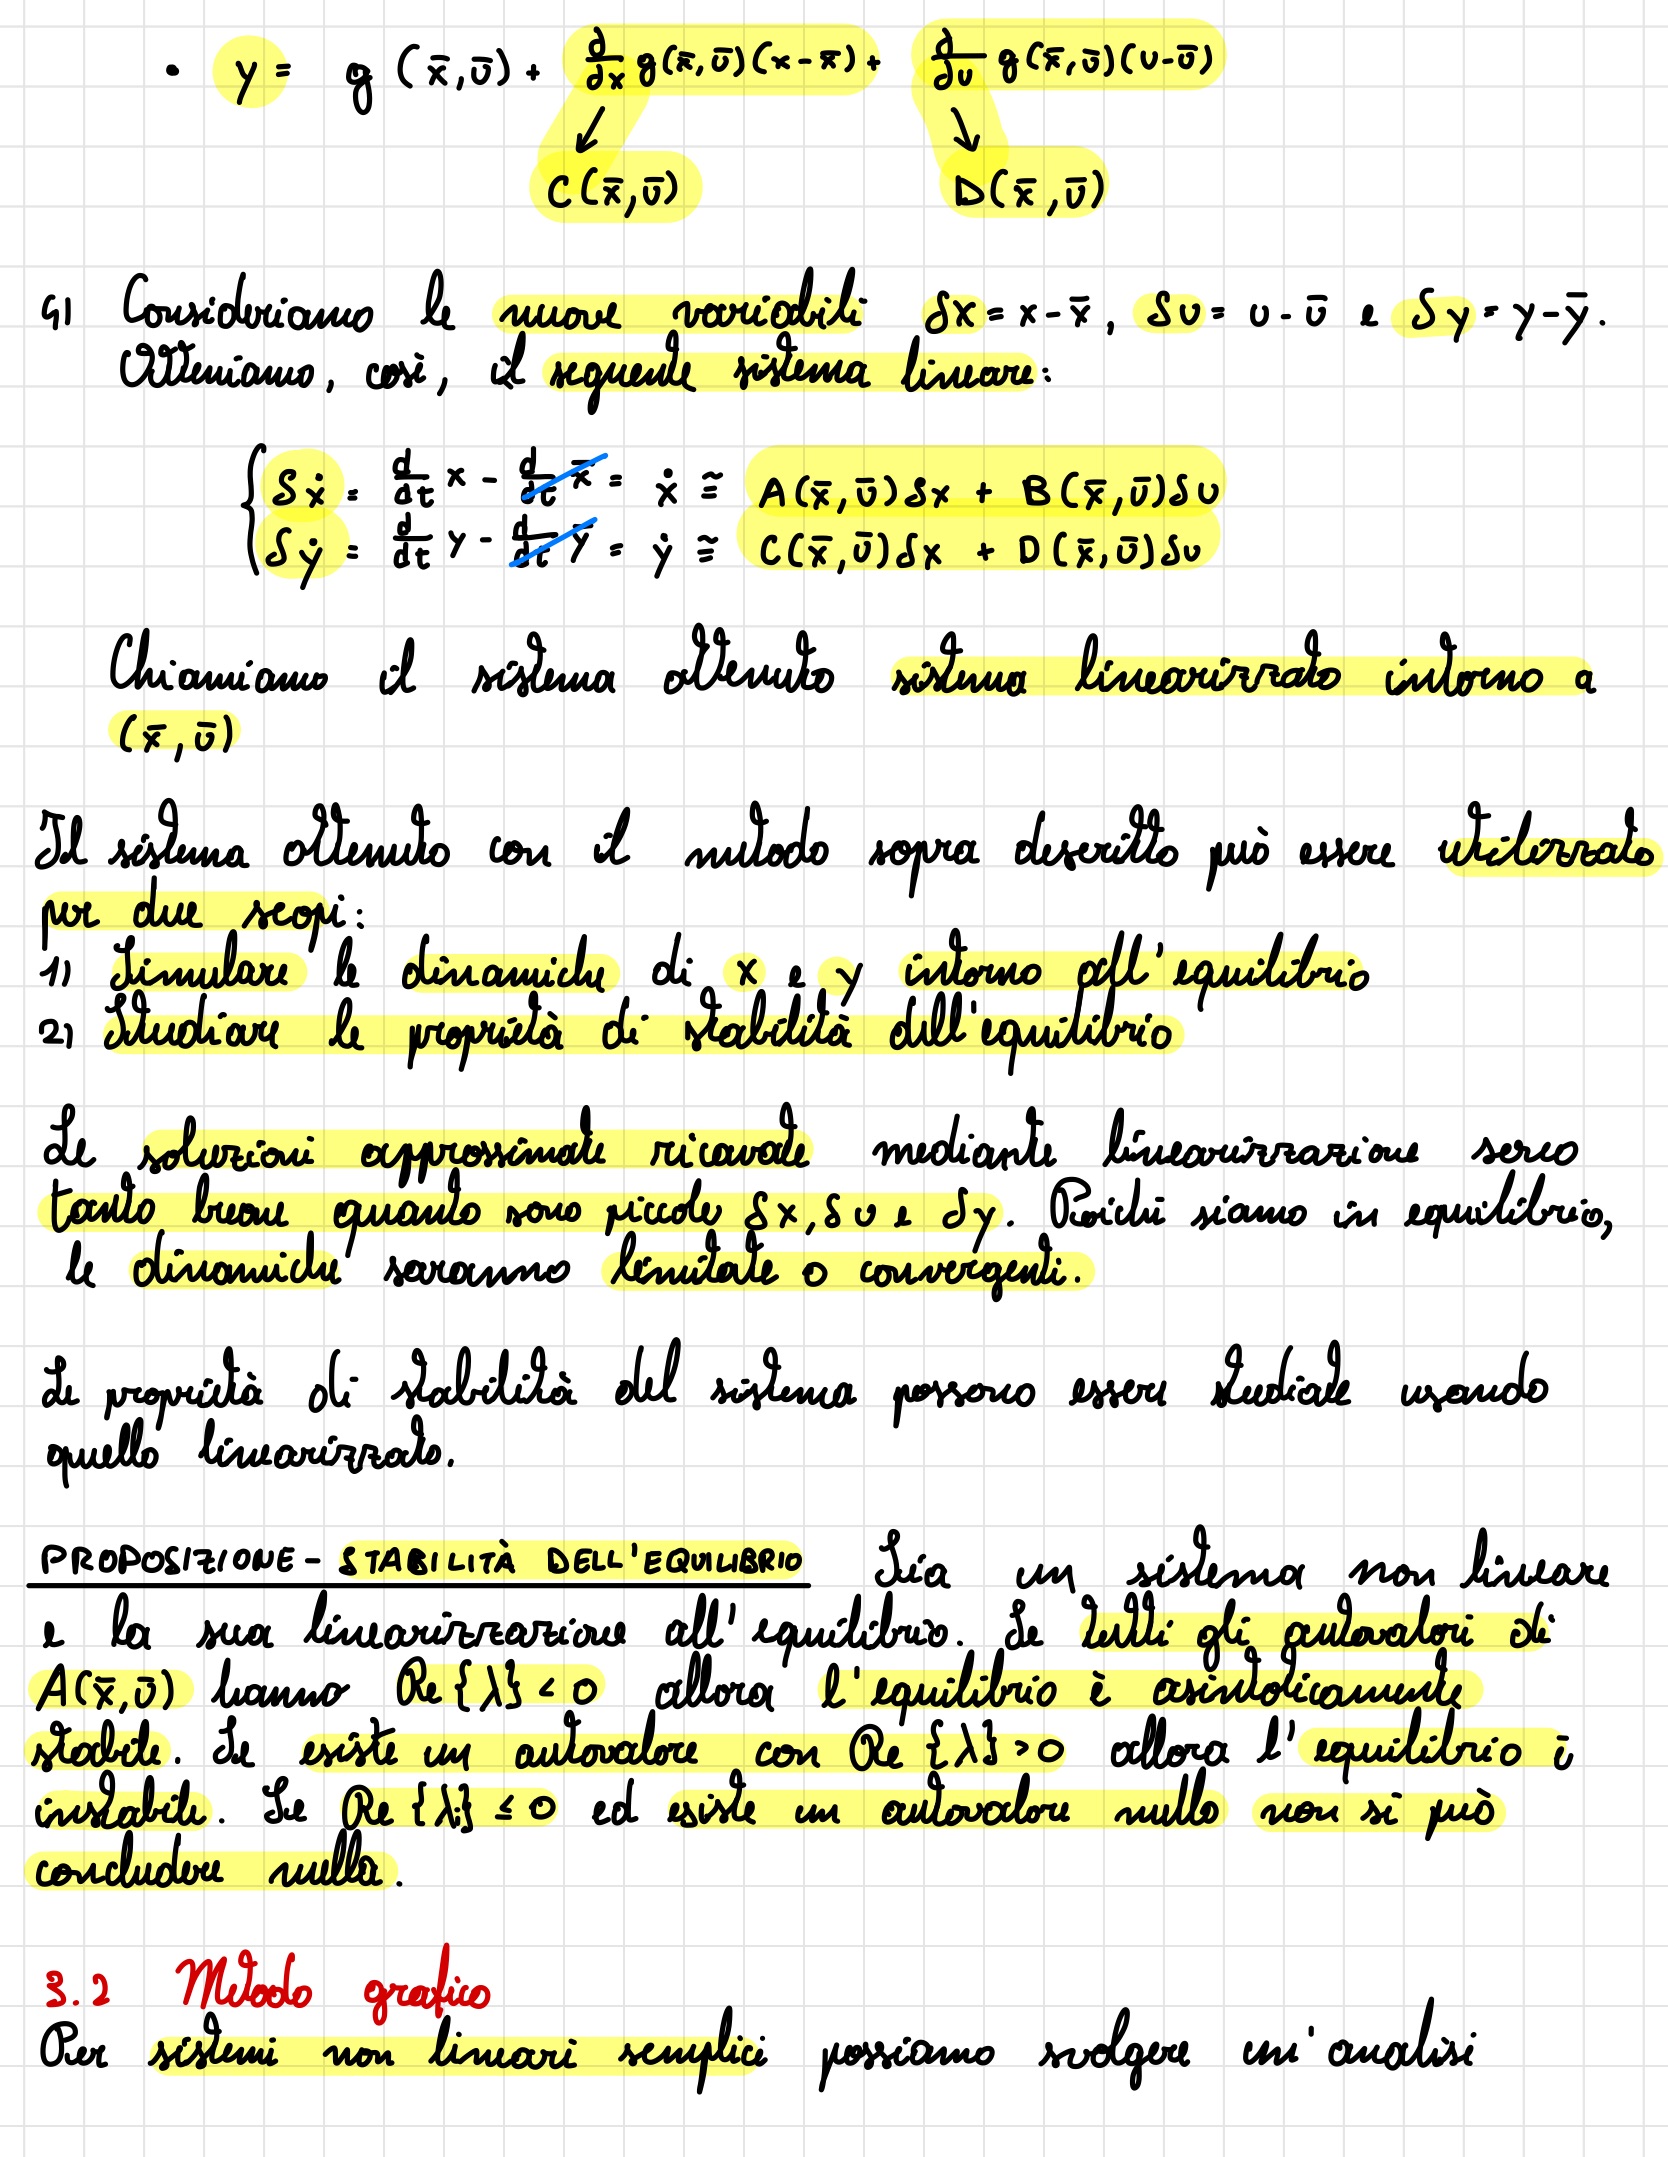 • y = g (x̄,ū) + d/dx g(x̄,ū)(x-x̄) + d/du g(x̄,ū)(u-ū)
↙ ↘
C(x̄,ū) D(x̄,ū)
4) Consideriamo le nuove variabili δx = x-x̄, δu = u-ū e δy = y-ȳ.
Otteniamo, così, il seguente sistema lineare:
{ δẋ = d/dt x - d/dt x̄ = ẋ ≅ A(x̄,ū)δx + B(x̄,ū)δu
δẏ = d/dt y - d/dt ȳ = ẏ ≅ C(x̄,ū)δx + D(x̄,ū)δu
Chiamiamo il sistema ottenuto sistema linearizzato intorno a
(x̄,ū)
Il sistema ottenuto con il metodo sopra descritto può essere utilizzato
per due scopi:
1) Simulare le dinamiche di x e y intorno all'equilibrio
2) Studiare le proprietà di stabilità dell'equilibrio
Le soluzioni approssimate ricavate mediante linearizzazione sono
tanto buone quanto sono piccole δx, δu e δy. Poiché siamo in equilibrio,
le dinamiche saranno limitate o convergenti.
Le proprietà di stabilità del sistema possono essere studiate usando
quello linearizzato.
PROPOSIZIONE - STABILITÀ DELL'EQUILIBRIO Sia un sistema non lineare
e la sua linearizzazione all'equilibrio. Se tutti gli autovalori di
A(x̄,ū) hanno Re{λ} < 0 allora l'equilibrio è asintoticamente
stabile. Se esiste un autovalore con Re{λ} > 0 allora l'equilibrio è
instabile. Se Re{λi} ≤ 0 ed esiste un autovalore nullo non si può
concludere nulla.
3.2 Metodo grafico
Per sistemi non lineari semplici possiamo svolgere un'analisi